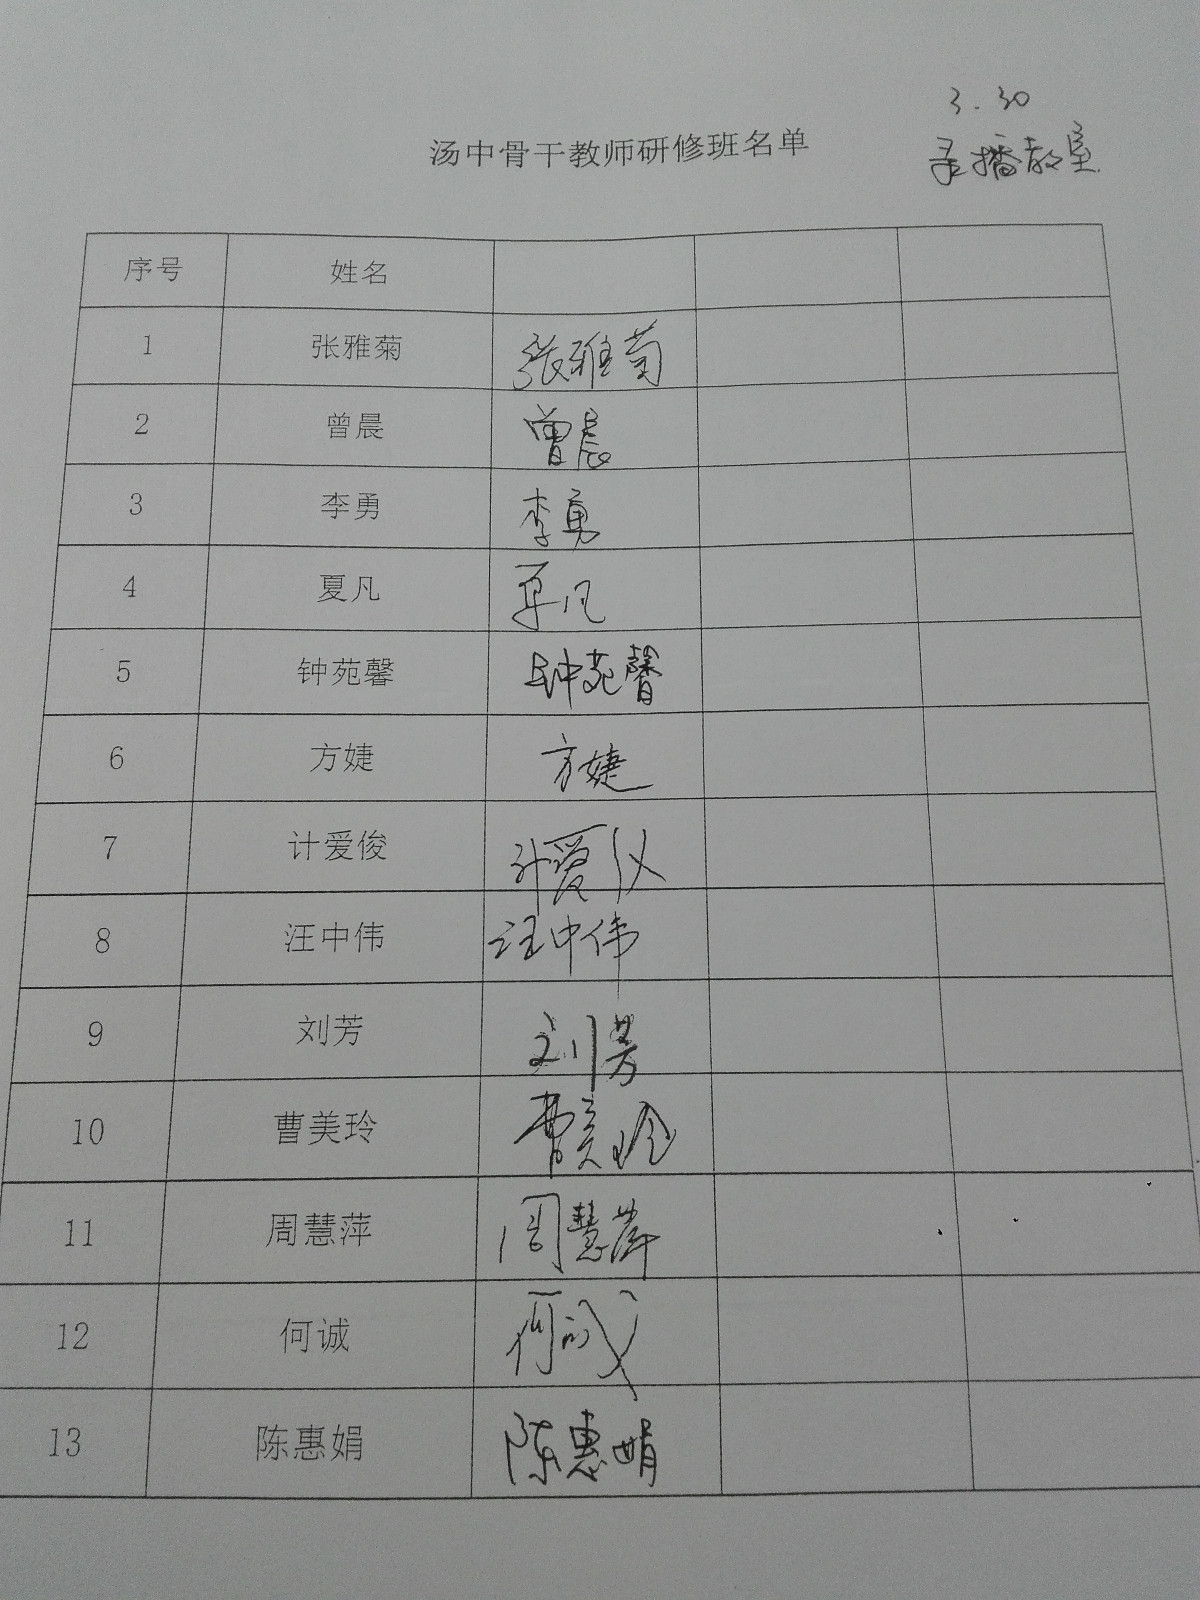 3.30
汤中骨干教师研修班名单
录播教室
序号 姓名
1 张雅菊 张雅菊
2 曾晨 曾晨
3 李勇 李勇
4 夏凡 夏凡
5 钟苑馨 钟苑馨
6 方婕 方婕
7 计爱俊 计爱仪
8 汪中伟 汪中伟
9 刘芳 刘芳
10 曹美玲 曹美玲
11 周慧萍 周慧萍
12 何诚 何诚
13 陈惠娟 陈惠娟